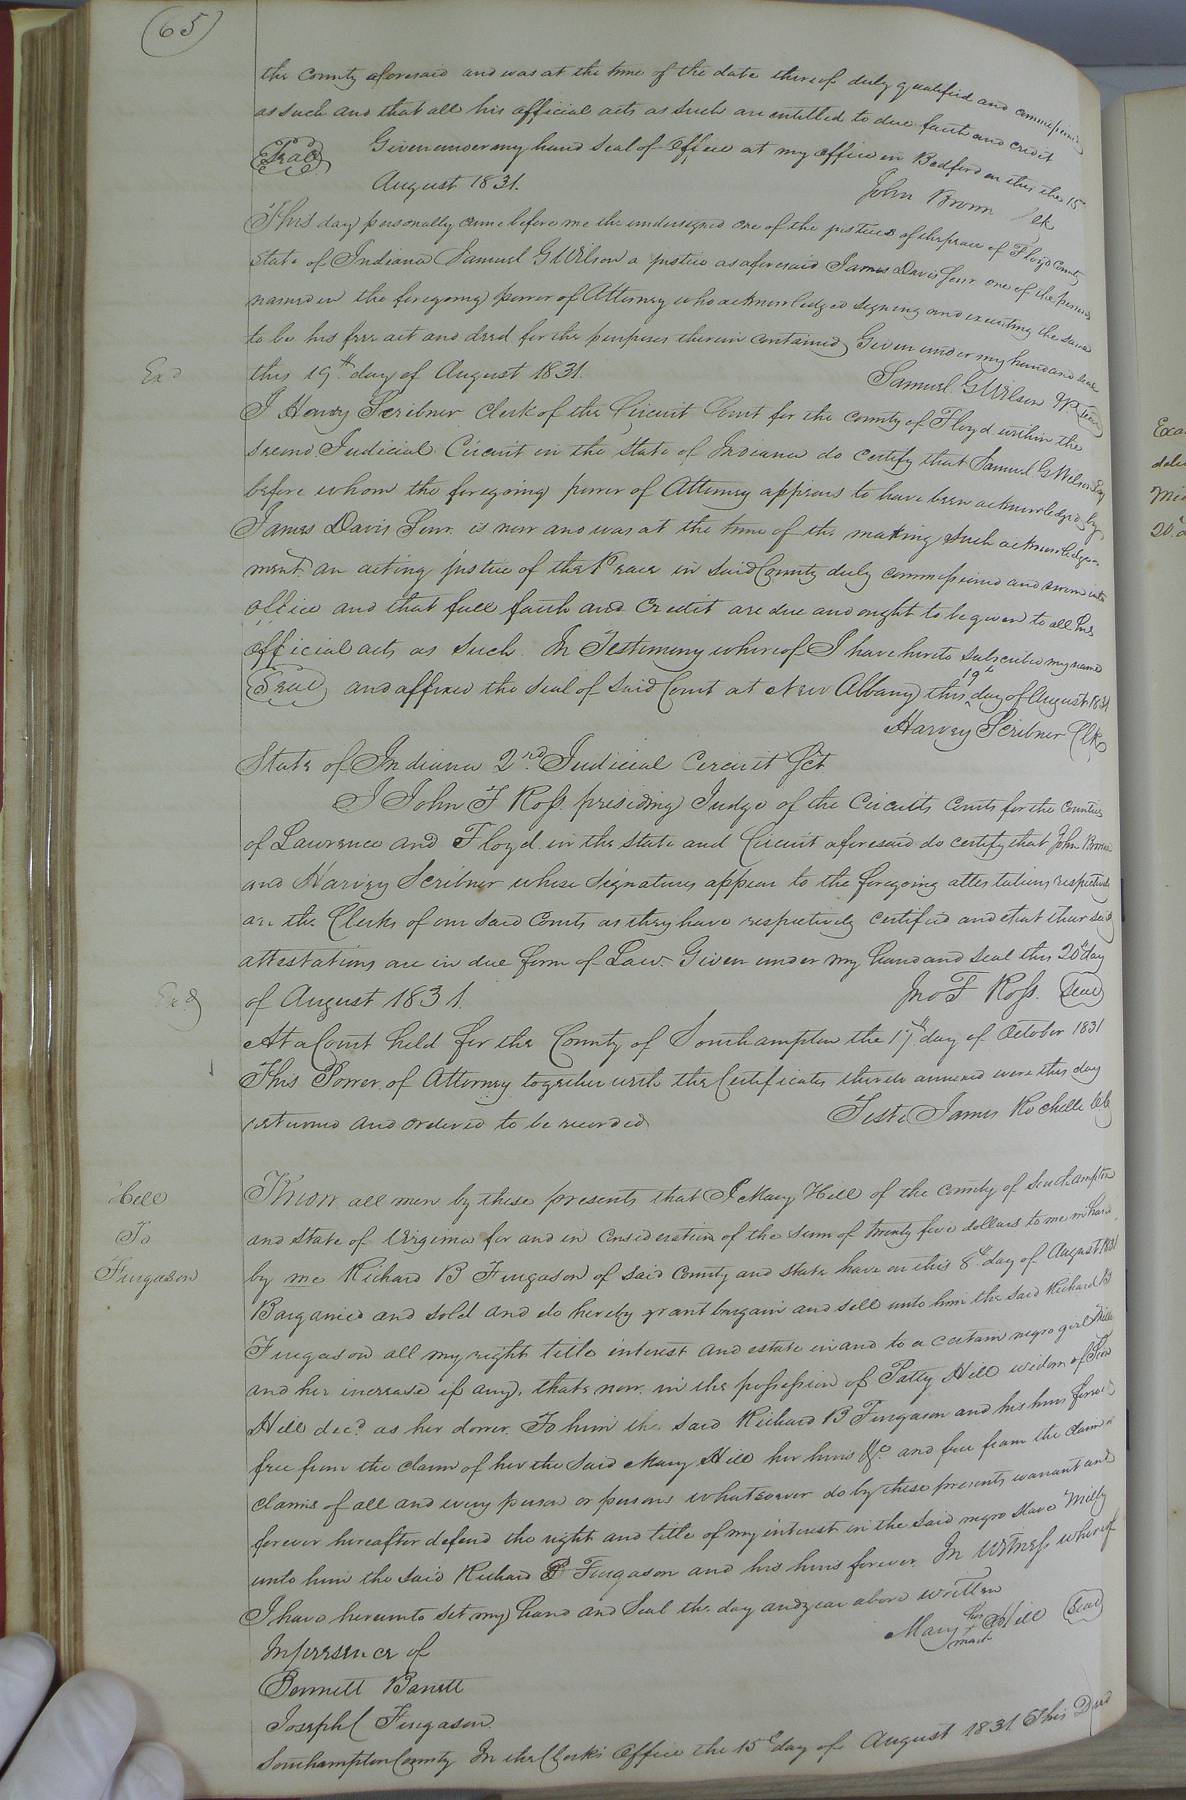 65
the County aforesaid and was at the time of the date thereof duly qualified and commissioned
as such and that all his official acts as such are entitled to due faith and credit
Seal Given under my hand Seal of Office at my office in Bedford on this the 15
August 1831. John Brown Clk
This day personally came before me the undersigned one of the justices of the peace of Floyd County
State of Indiana Samuel G Wilson a justice as aforesaid James Davis Senr. one of the persons
named in the foregoing power of Attorney who acknowledged signing and executing the same
to be his free act and deed for the purposes therein contained Given under my hand and seal
Ex.d this 19th day of August 1831. Samuel G Wilson JP Seal
I Harvy Scribner Clerk of the Circuit Court for the County of Floyd within the
second Judicial Circuit in the State of Indiana do certify that Samuel G Wilson Esq
before whom the foregoing power of Attorney appears to have been acknowledged by
James Davis Senr. is now and was at the time of the making such acknowledge
ment an acting justice of the Peace in said County duly commissioned and sworn into
office and that full faith and credit are due and ought to be given to all his
official acts as such. In Testimony whereof I have hereto subscribed my name
Seal and affixed the seal of said Court at New Albany this 19 day of August 1831
Harvey Scribner Clk
State of Indiana 2nd. Judicial Circuit Sct
I John F Ross presiding Judge of the Circuits Courts for the Counties
of Lawrence and Floyd in the State and Circuit aforesaid do certify that John Brown
and Harvey Scribner whose signatures appear to the foregoing attestations respectively
are the Clerks of our said Courts as they have respectively certified and that their said
attestations are in due form of Law. Given under my hand and seal this 20th day
of August 1831. Jno F Ross. Seal
At a Court held for the County of Southampton the 17th. day of October 1831
This Power of Attorney together with the Certificates thereto annexed were this day
returned and ordered to be recorded
Teste James Rochelle
Hill
To
Fingason
Know all men by these presents that I Mary Hill of the County of Southampton
and State of Virginia for and in consideration of the sum of twenty five dollars to me in hand
by me Richard B Fingason of said County and State have on this 8th day of August 1831
Barganied and sold and do hereby grant bargain and sell unto him the said Richard B
Fingason all my right title interest and estate in and to a certain negro girl Milly
and her increase if any, thats now in the possession of Patty Hill widow of
Hill decd. as her dower. To him the said Richard B Fingason and his heirs forever
free from the claim of her the said Mary Hill her heirs &c. and free from the claim or
claims of all and every person or persons whatsoever do by these presents warrant and
forever hereafter defend the right and title of my interest in the said negro slave Milly
unto him the said Richard B Fingason and his heirs forever. In Witness whereof
I have hereunto set my hand and Seal the day and year above written
Mary her x mark Hill Seal
In presence of
Bennett Barrett
Joseph Fingason.
Southampton County In the Clerk's Office the 15th day of August 1831 This Deed
20.